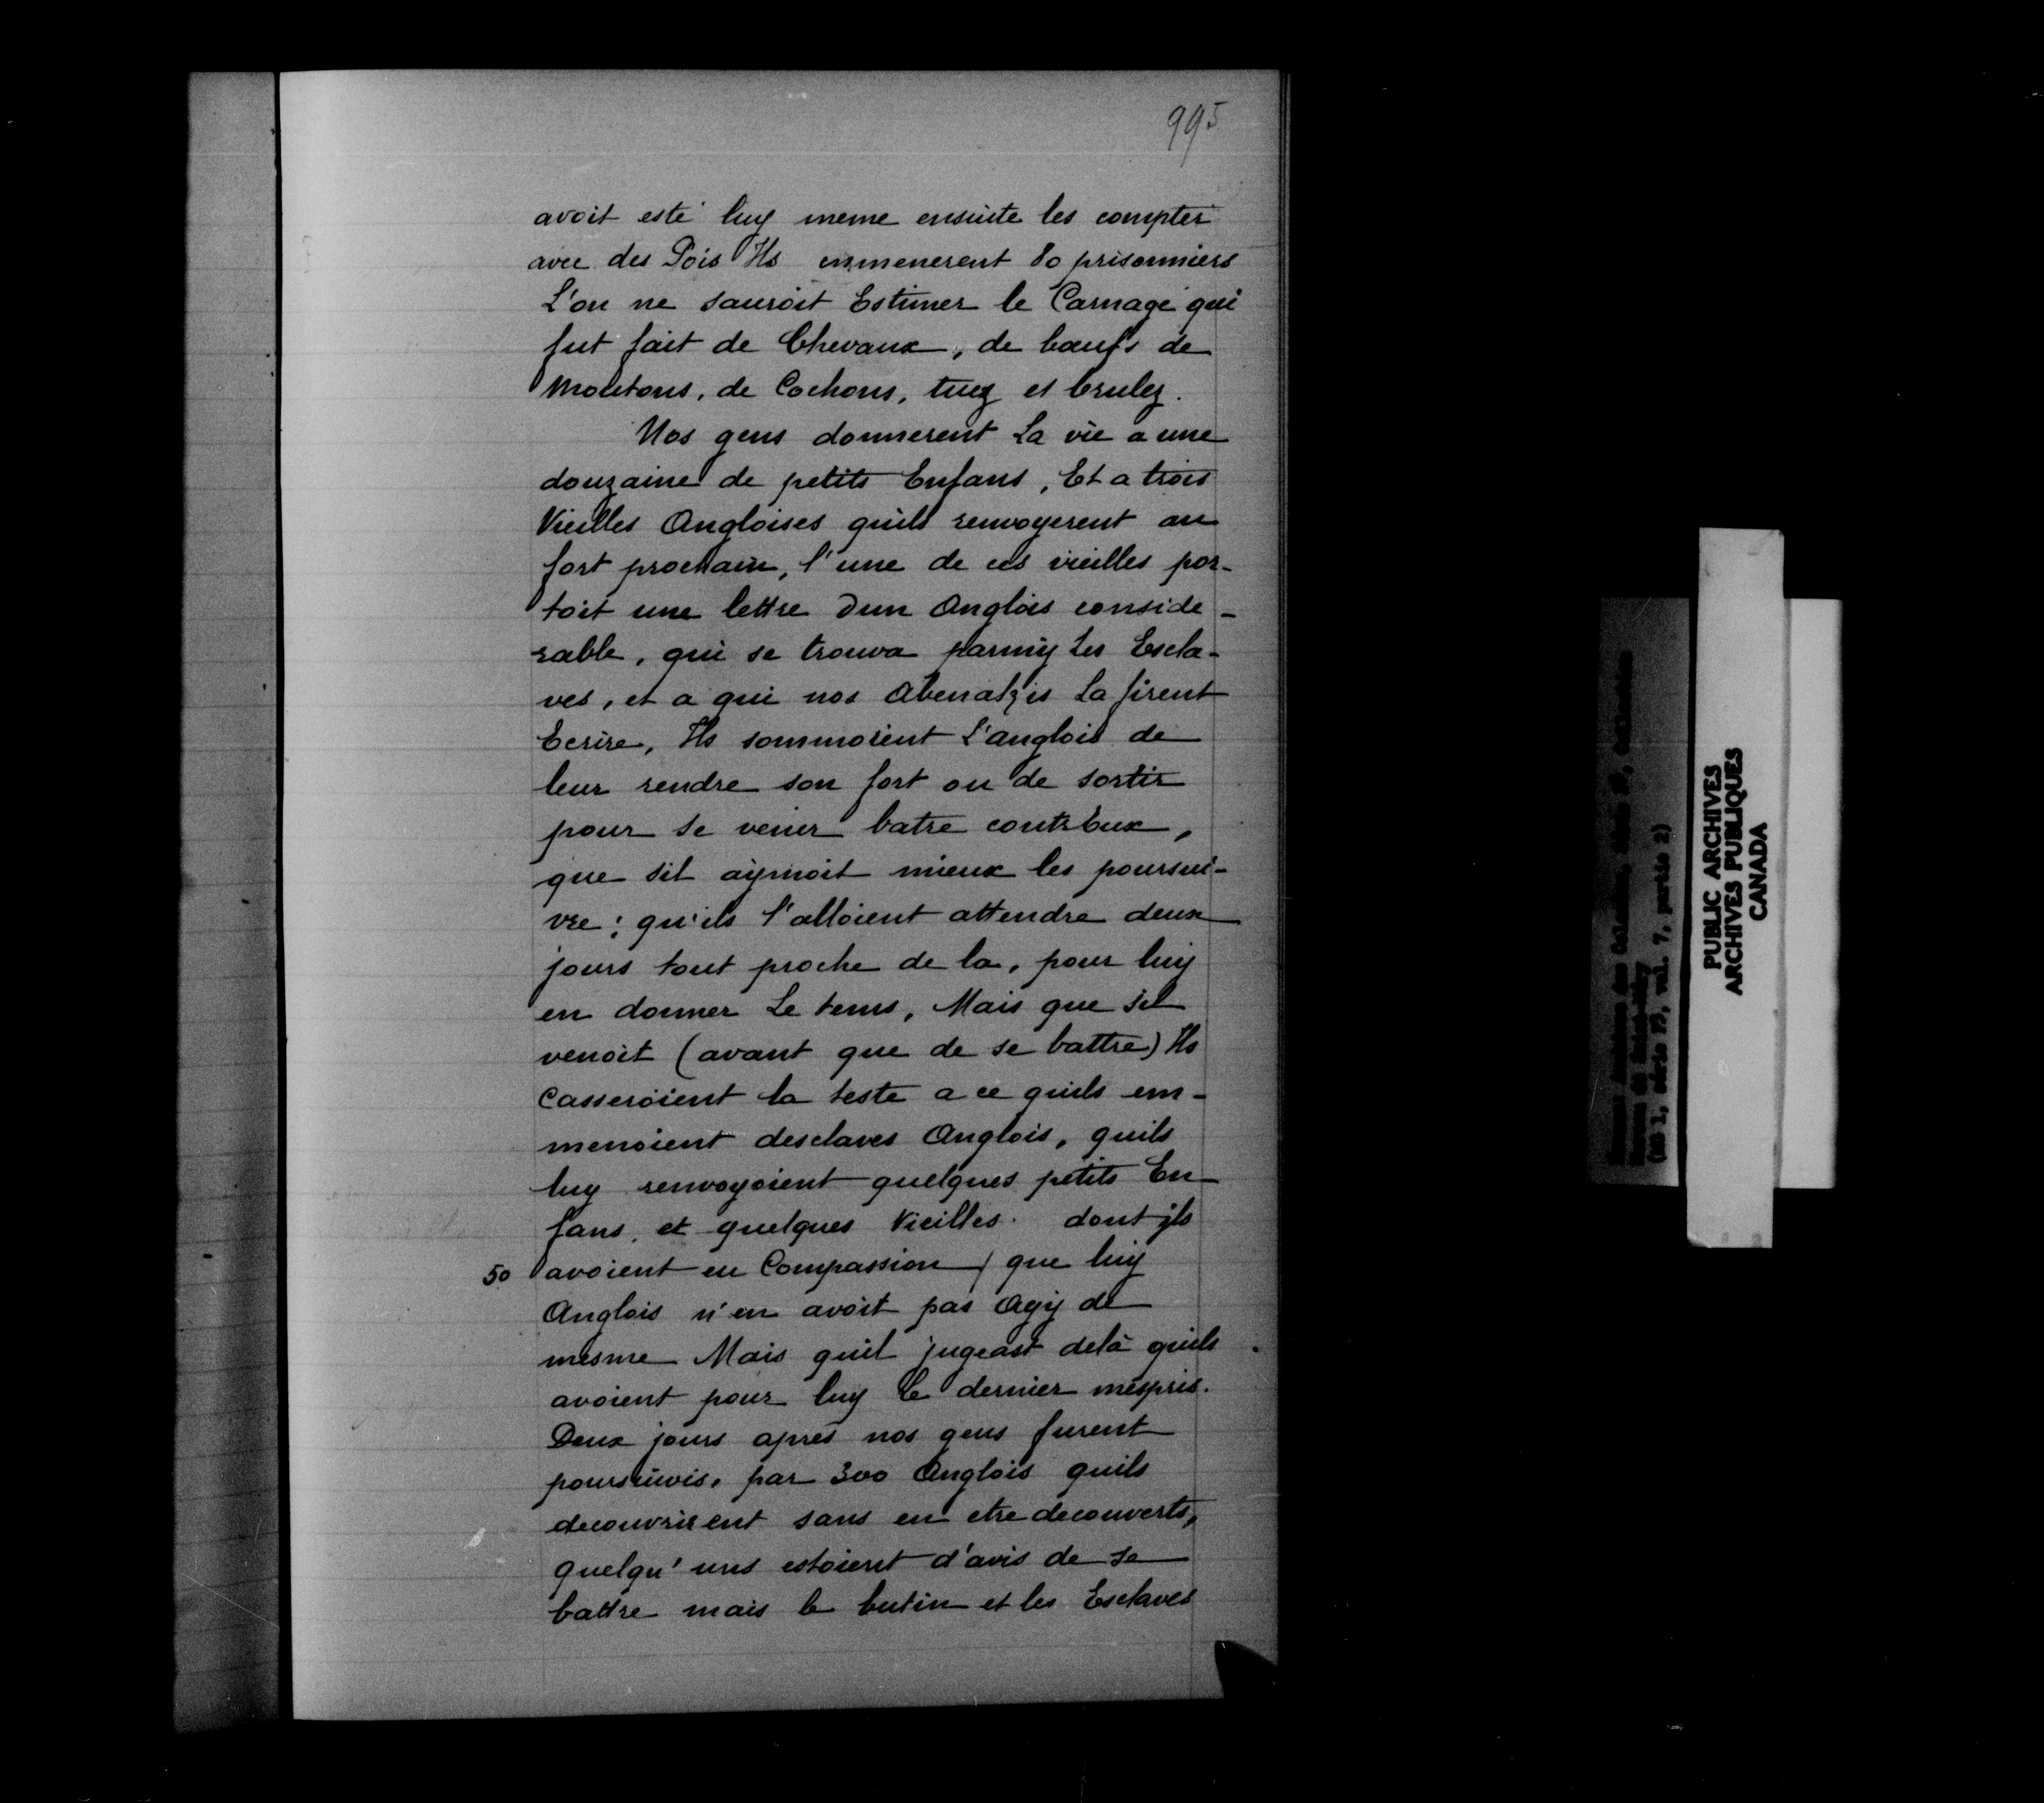 995
avoit esté luy meme ensuite les compter
avec des Pois Ils emmenerent 80 prisonniers
L'on ne sauroit Estimer le Carnage qui
fut fait de Chevaux, de bœufs de
Moutons, de Cochons, tuez et brulez.
Nos gens donnerent La vie a une
douzaine de petits Enfans, Et a trois
Vieilles Angloises quils renvoyerent au
fort prochain, l'une de ces vieilles por-
toit une lettre Dun Anglois conside-
rable, qui se trouva parmy Les Escla-
ves, et a qui nos Abenakis La firent
Ecrire, Ils sommoient L'anglois de
leur rendre son fort ou de sortir
pour se venir batre contr Eux,
que sil aymoit mieux les poursui-
vre; qu'ils l'alloient attendre deux
jours tout proche de la, pour luy
en donner Le tems, Mais que sil
venoit (avant que de se battre) Ils
Casseroient la teste a ce quils em-
menoient desclaves Anglois, quils
luy renvoyoient quelques petits En-
fans, et quelques Vieilles. dont jls
50 avoient eu Compassion / que luy
Anglois n'en avoit pas Agy de
mesme Mais quil jugeast delà quils
avoient pour luy le dernier mespris.
Deux jours aprés nos gens furent
poursuivis, par 300 Anglois quils
decouvrirent sans en etre decouverts,
quelqu'uns estoient d'avis de se
battre mais le butin et les Esclaves
PUBLIC ARCHIVES
ARCHIVES PUBLIQUES
CANADA
(MG 1, série F3, vol. 7, partie 2)